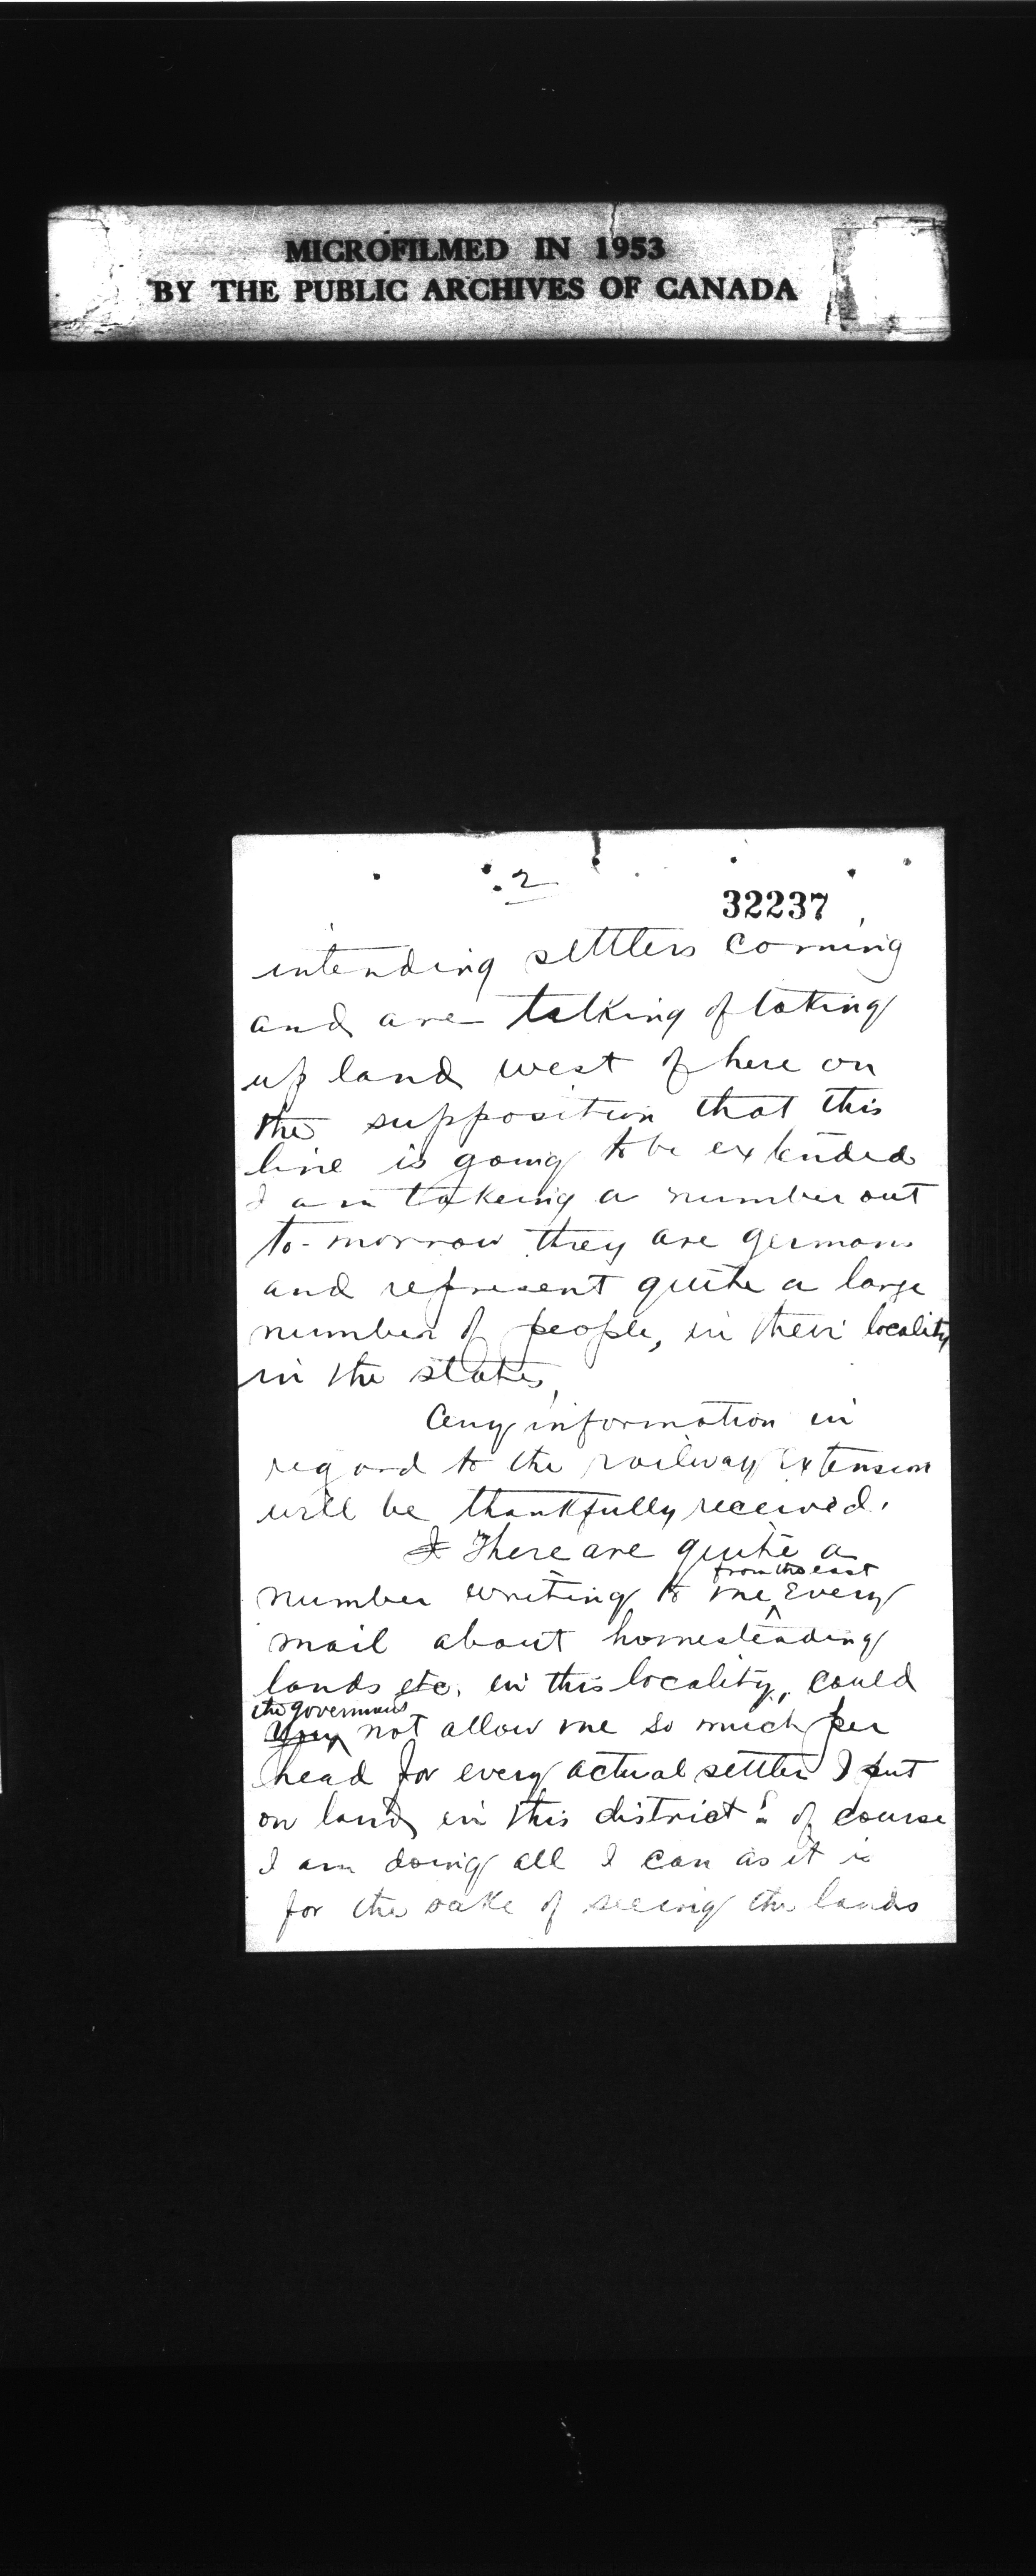 MICROFILMED IN 1953
BY THE PUBLIC ARCHIVES OF CANADA
2
32237
intending settlers coming
and are talking of taking
up land west of here on
the supposition that this
line is going to be extended
I am takeing a number out
to-morrow they are germans
and represent quite a large
number of people, in their locality
in the states,
Any information in
regard to the railway extension
will be thankfully received.
I There are quite a
from the east
number writing to me every
mail about homesteading
lands etc. in this locality, could
the government
not allow me so much per
head for every actual settler I put
on land in this district? of course
I am doing all I can as it is
for the sake of seeing the lands